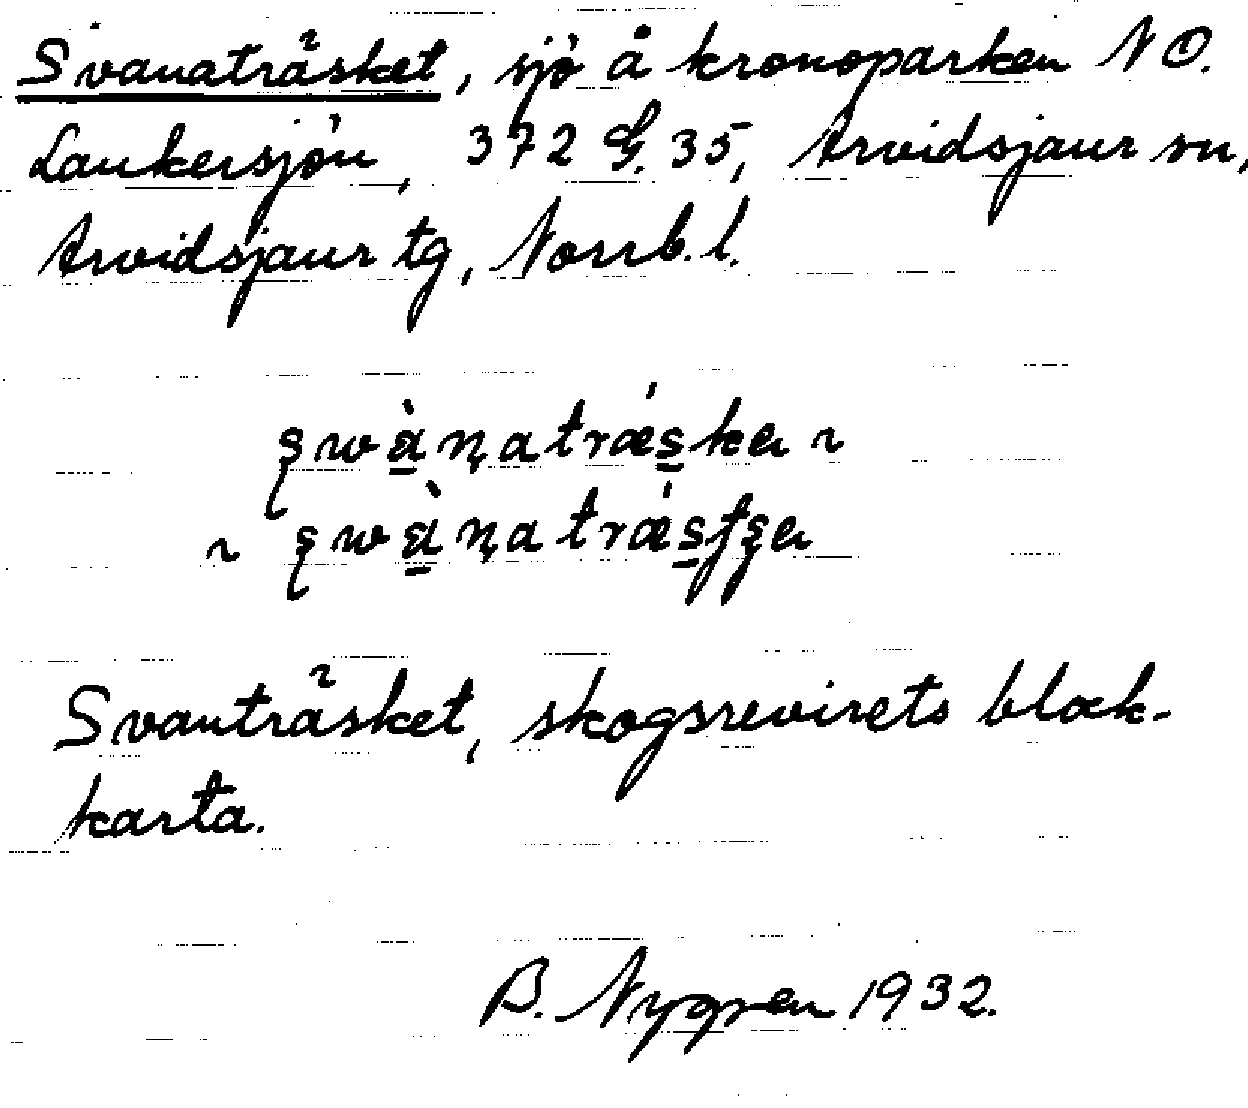 Svanaträsket, sjö å kronoparken NO.
Laukersjön, 372 G. 35, Arvidsjaur sn,
Arvidsjaur tg, Norrb. l.
Svanträsket, skogsrevirets block-
karta.
B. Nygren 1932.